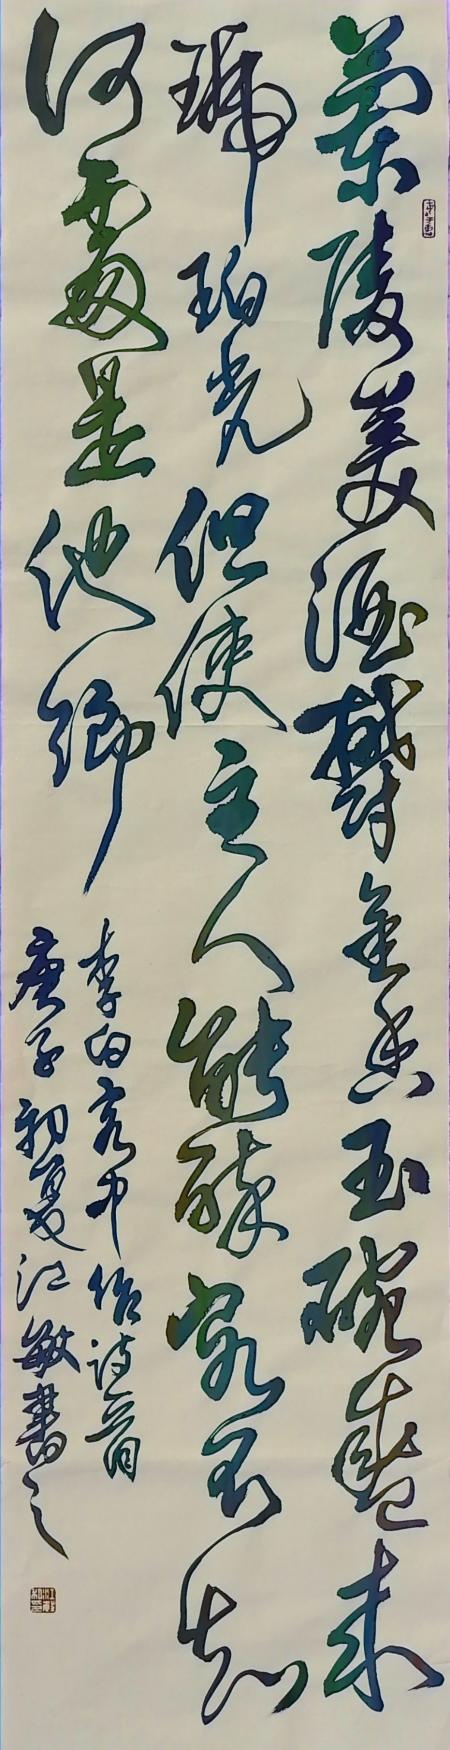 蘭陵美酒鬱金香玉碗盛来
琥珀光但使主人能醉客不知
何處是他鄉
李白客中作詩一首
庚子初夏江敏書之